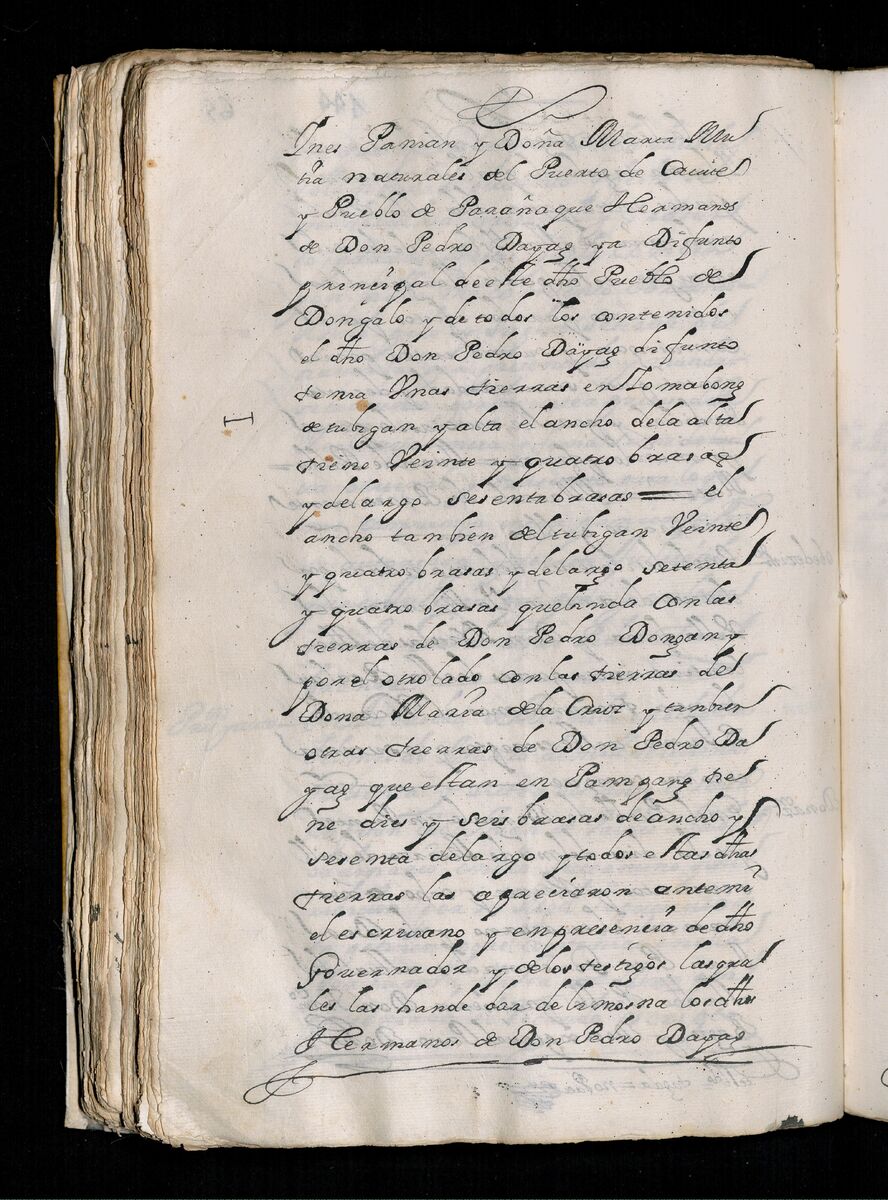 Ynes Panian y Doña Maria Mu
tia naturales del Puerto de Cavite
y Pueblo de Parañaque Hermanos
de Don Pedro Dayag ya Difunto
principal de este dho Pueblo de
Dongalo y de todos los contenidos
el dho Don Pedro Dayag difunto
tenia Unas tierras en Tomabong
de tubigan y alta el ancho de la alta
tiene Veinte y quatro brasas
y de largo sesenta brasas = el
ancho tambien del tubigan Veinte
y quatro brasas y de largo setenta
y quatro brasas que linda con las
tierras de Don Pedro Dongan y
por el otro lado con las tierras de
Dona Maria de la Cruz y tanbien
otras tierras de Don Pedro Da
yag que estan en Pamgang tie
ñe dies y seis brasas de ancho y
sesenta de largo y todos estas dhas
tierras las apreciaron ante mi
el escrivano y en presencia de dho
Governador y de los testigos las qua
les las hande dar de limosna los dhos
Hermanos de Don Pedro Dayag